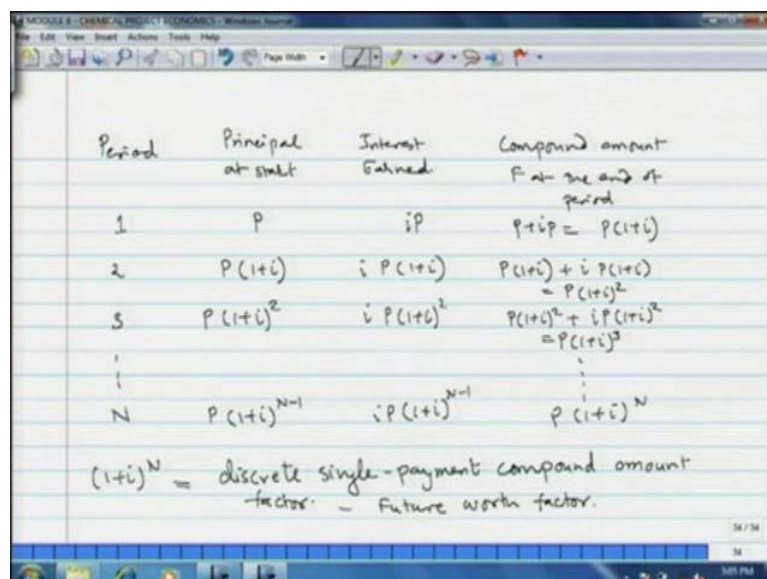 MODULE 8 - CHEMICAL PROJECT ECONOMICS - Windows Journal
File Edit View Insert Actions Tools Help
Page Width
Period Principal Interest Compound amount
at start Earned F at the end of
period
1 P iP P+iP = P(1+i)
2 P(1+i) i P(1+i) P(1+i) + i P(1+i)
= P(1+i)²
3 P(1+i)² i P(1+i)² P(1+i)² + iP(1+i)²
= P(1+i)³
N P(1+i)ᴺ⁻¹ iP(1+i)ᴺ⁻¹ P(1+i)ᴺ
(1+i)ᴺ = discrete single-payment compound amount
factor. - Future worth factor.
34 / 34
34
3:05 PM